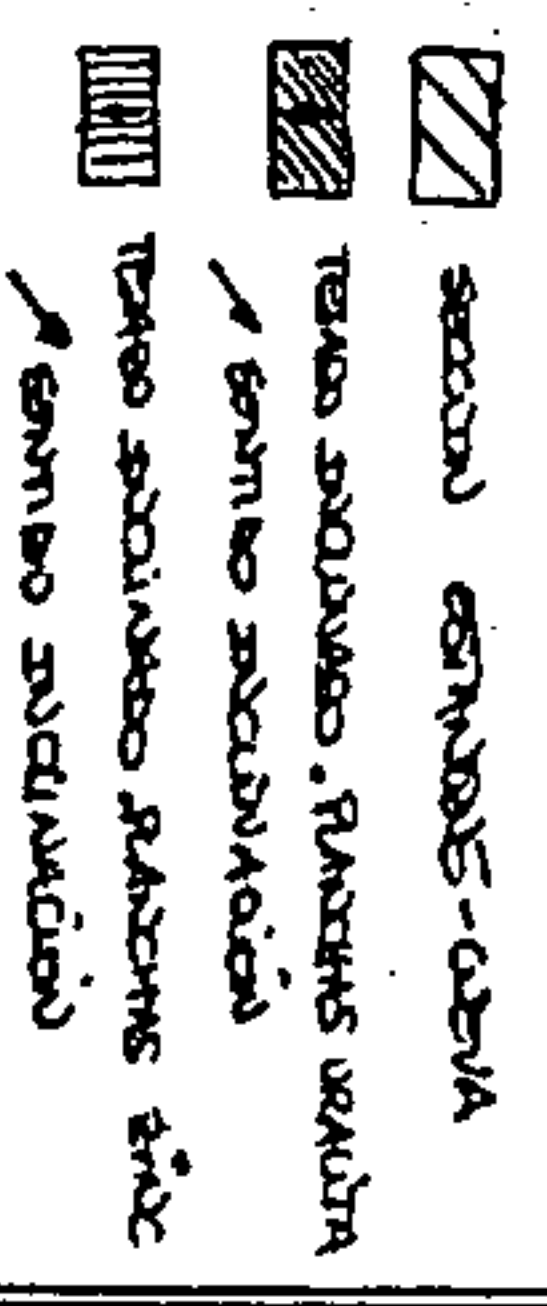 SECCION ESTANDAR-CUEVA
TEJADO INCLINADO. PLANCHAS URALITA
SENTIDO INCLINACIÓN
TEJADO INCLINADO. PLANCHAS ZINC
SENTIDO INCLINACIÓN